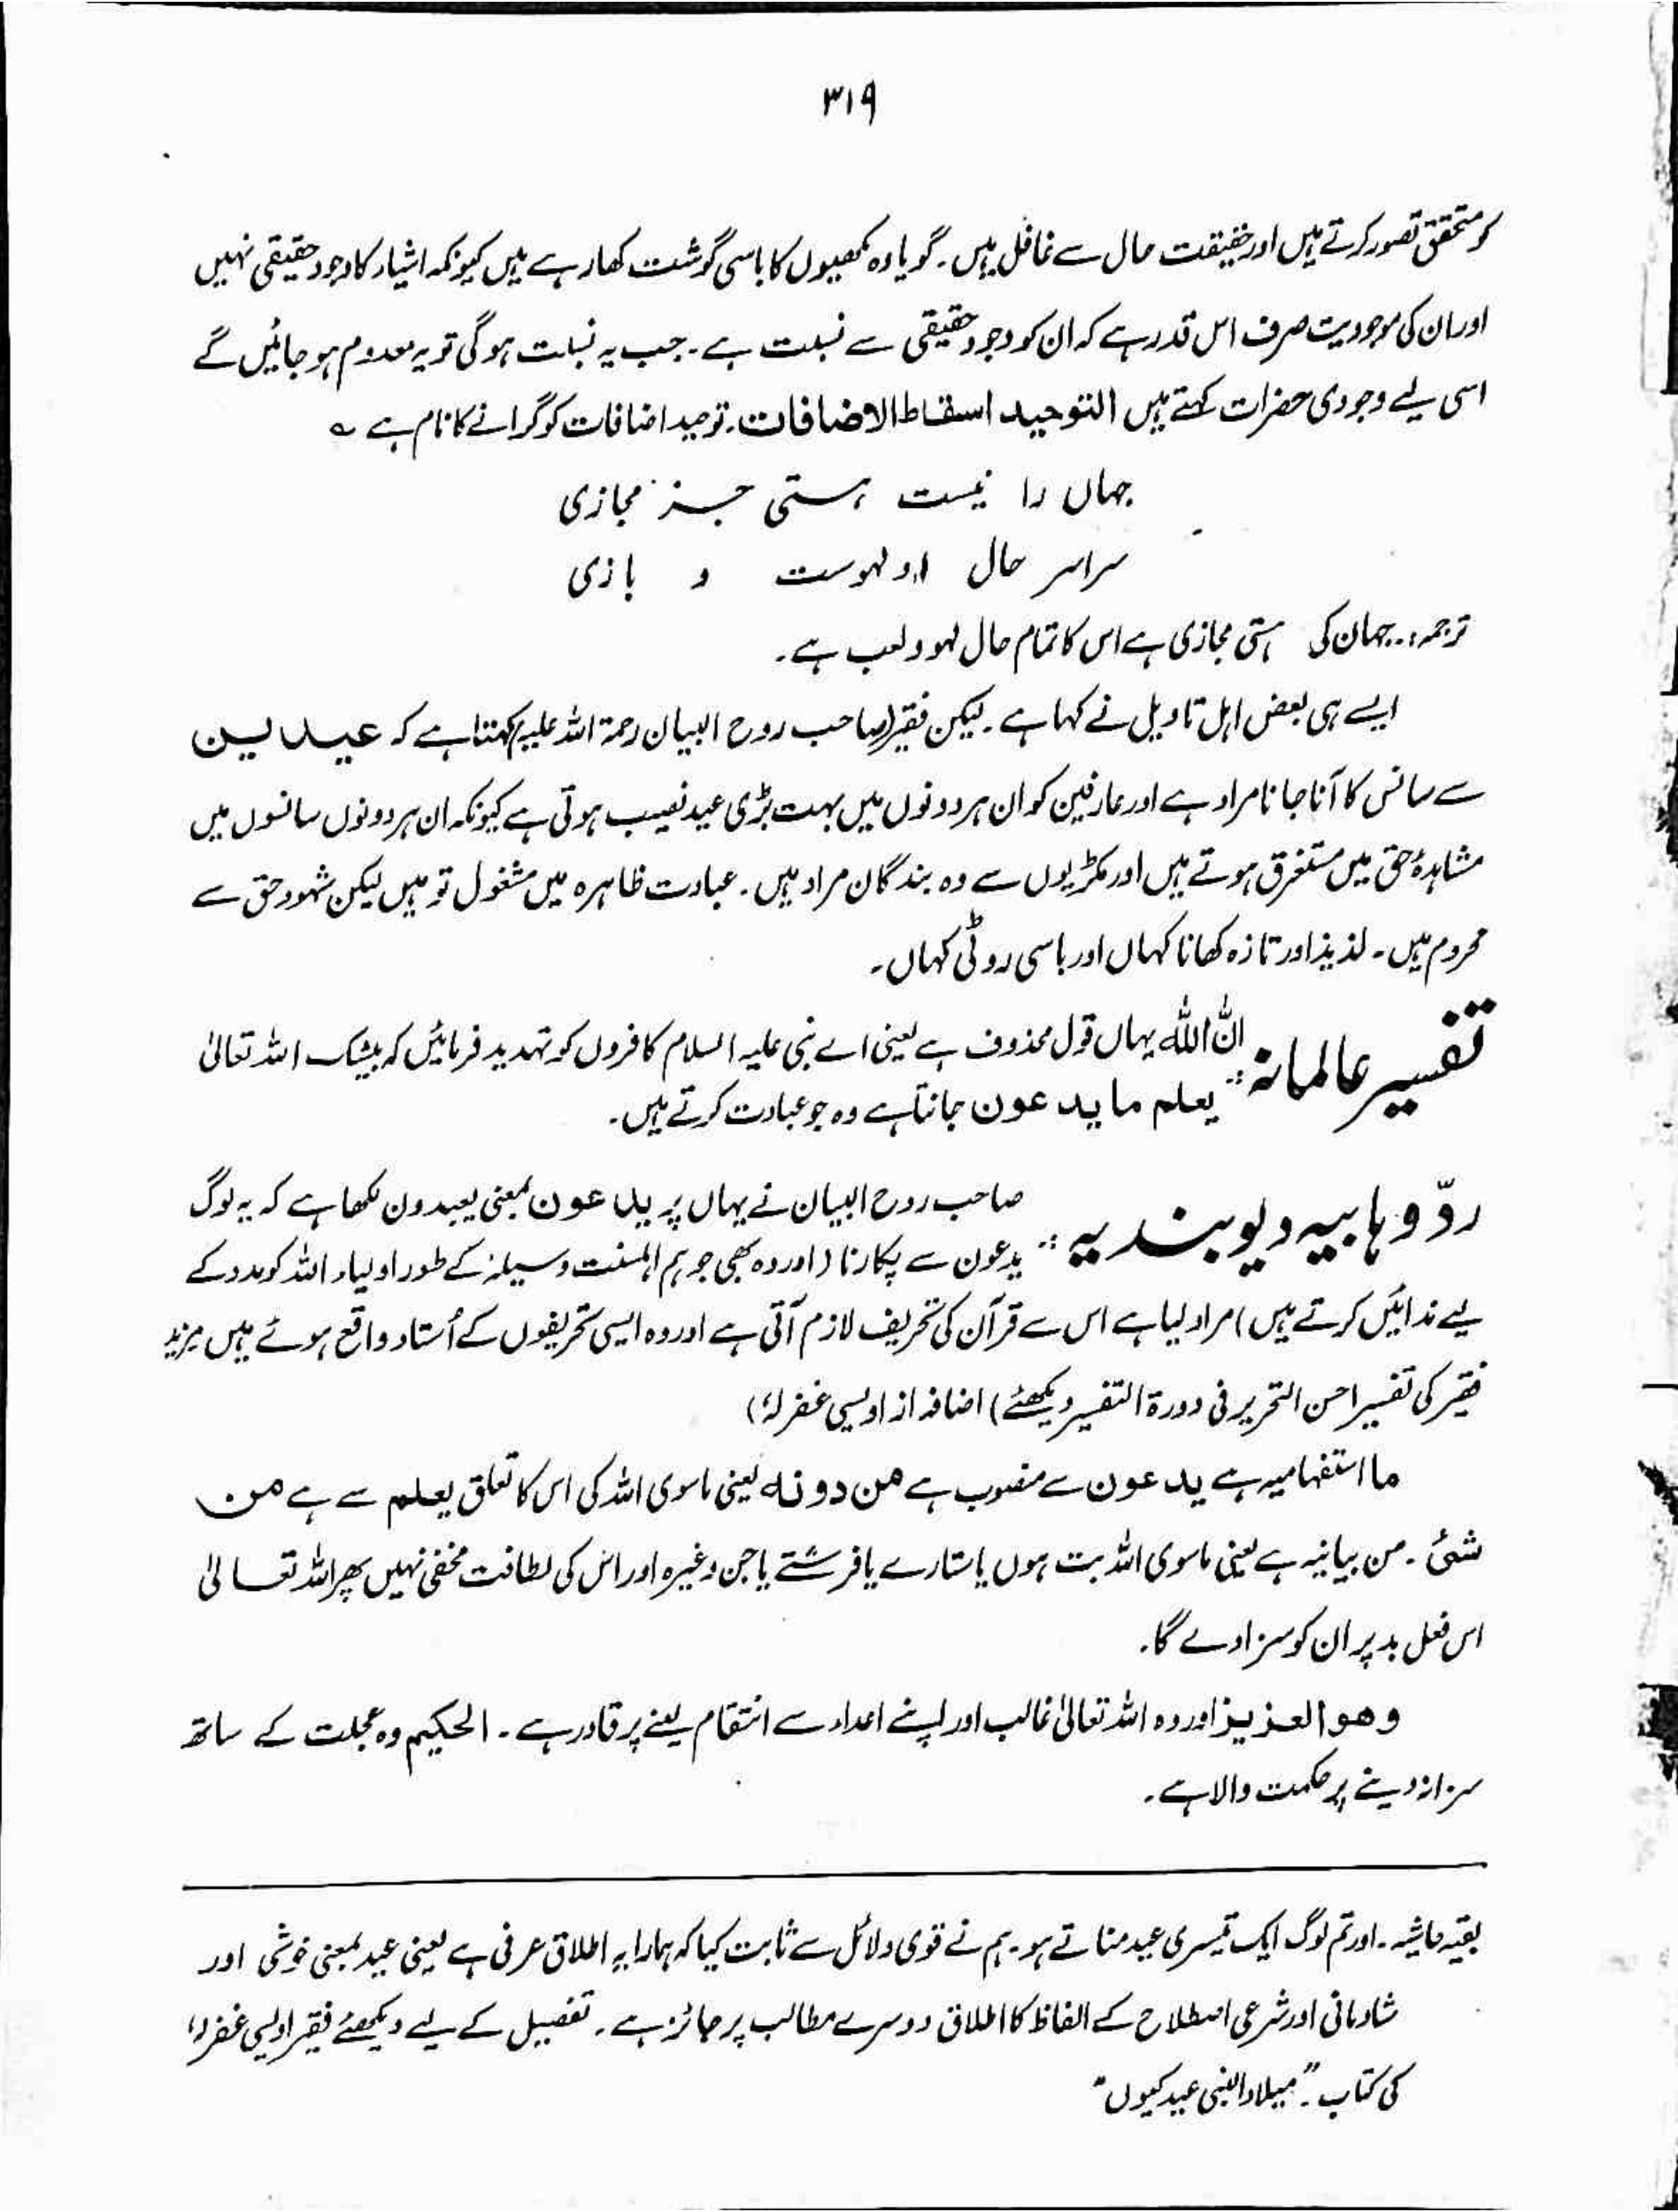 ۳۱۹
کو متحقق تصور کرتے ہیں اور حقیقت حال سے غافل ہیں۔ گویا وہ مکھیوں کا باسی گوشت کھا رہے ہیں کیونکہ اشیاء کا وجود حقیقی نہیں
اور ان کی موجودیت صرف اس قدر ہے کہ ان کو وجود حقیقی سے نسبت ہے۔ جب یہ نسبت ہو گی تو یہ معدوم ہو جائیں گے
اسی لیے وجودی حضرات کہتے ہیں التوحید اسقاط الاضافات۔ توحید اضافات کو گرانے کا نام ہے ؎
جہاں را نیست ہستی جز مجازی
سراسر حال او لہوست و بازی
ترجمہ:۔ جہان کی ہستی مجازی ہے اس کا تمام حال لہو و لعب ہے۔
ایسے ہی بعض اہل تاویل نے کہا ہے۔ لیکن فقیر (صاحب روح البیان رحمۃ اللہ علیہ) کہتا ہے کہ عیدین
سے سانس کا آنا جانا مراد ہے اور عارفین کو ان ہر دونوں میں بہت بڑی عید نصیب ہوتی ہے کیونکہ ان ہر دونوں سانسوں میں
مشاہدۂ حق میں مستغرق ہوتے ہیں اور مکڑیوں سے وہ بندگان مراد ہیں۔ عبادت ظاہرہ میں مشغول تو ہیں لیکن شہود حق سے
محروم ہیں۔ لذیذ اور تازہ کھانا کہاں اور باسی روٹی کہاں۔
تفسیر عالمانہ:۔ انّ اللہ یہاں قول محذوف ہے یعنی اے نبی علیہ السلام کافروں کو تہدید فرمائیں کہ بیشک اللہ تعالیٰ
یعلم ما یدعون جانتا ہے وہ جو عبادت کرتے ہیں۔
ردّ وہابیہ دیوبندیہ:۔ صاحب روح البیان نے یہاں پر یدعون بمعنی یعبدون لکھا ہے کہ یہ لوگ
یدعون سے پکارنا (اور وہ بھی جو ہم اہلسنت وسیلہ کے طور اولیاء اللہ کو مدد کے
لیے ندائیں کرتے ہیں) مراد لیا ہے اس سے قرآن کی تحریف لازم آتی ہے اور وہ ایسی تحریفوں کے اُستاد واقع ہوئے ہیں مزید
فقیر کی تفسیر احسن التحریر فی دورۃ التفسیر دیکھئے) اضافہ از اویسی غفرلہٗ)
ما استفہامیہ ہے یدعون سے منصوب ہے من دونہ یعنی ماسوی اللہ کی اس کا تعلق یعلم سے ہے من
شئ۔ من بیانیہ ہے یعنی ماسوی اللہ بت ہوں یا ستارے یا فرشتے یا جن وغیرہ اور اس کی لطافت مخفی نہیں پھر اللہ تعالیٰ
اس فعل بد پر ان کو سزا دے گا۔
وھو العزیز اور وہ اللہ تعالیٰ غالب اور اپنے اعداء سے انتقام لینے پر قادر ہے۔ الحکیم وہ عجلت کے ساتھ
سزا نہ دینے پر حکمت والا ہے۔
بقیہ حاشیہ۔ اور تم لوگ ایک تیسری عید مناتے ہو۔ ہم نے قوی دلائل سے ثابت کیا کہ ہمارا یہ اطلاق عرفی ہے یعنی عید بمعنی خوشی اور
شادمانی اور شرعی اصطلاح کے الفاظ کا اطلاق دوسرے مطالب پر جائز ہے۔ تفصیل کے لیے دیکھئے فقیر اویسی غفرلہٗ
کی کتاب۔ "میلاد النبی عید کیوں"